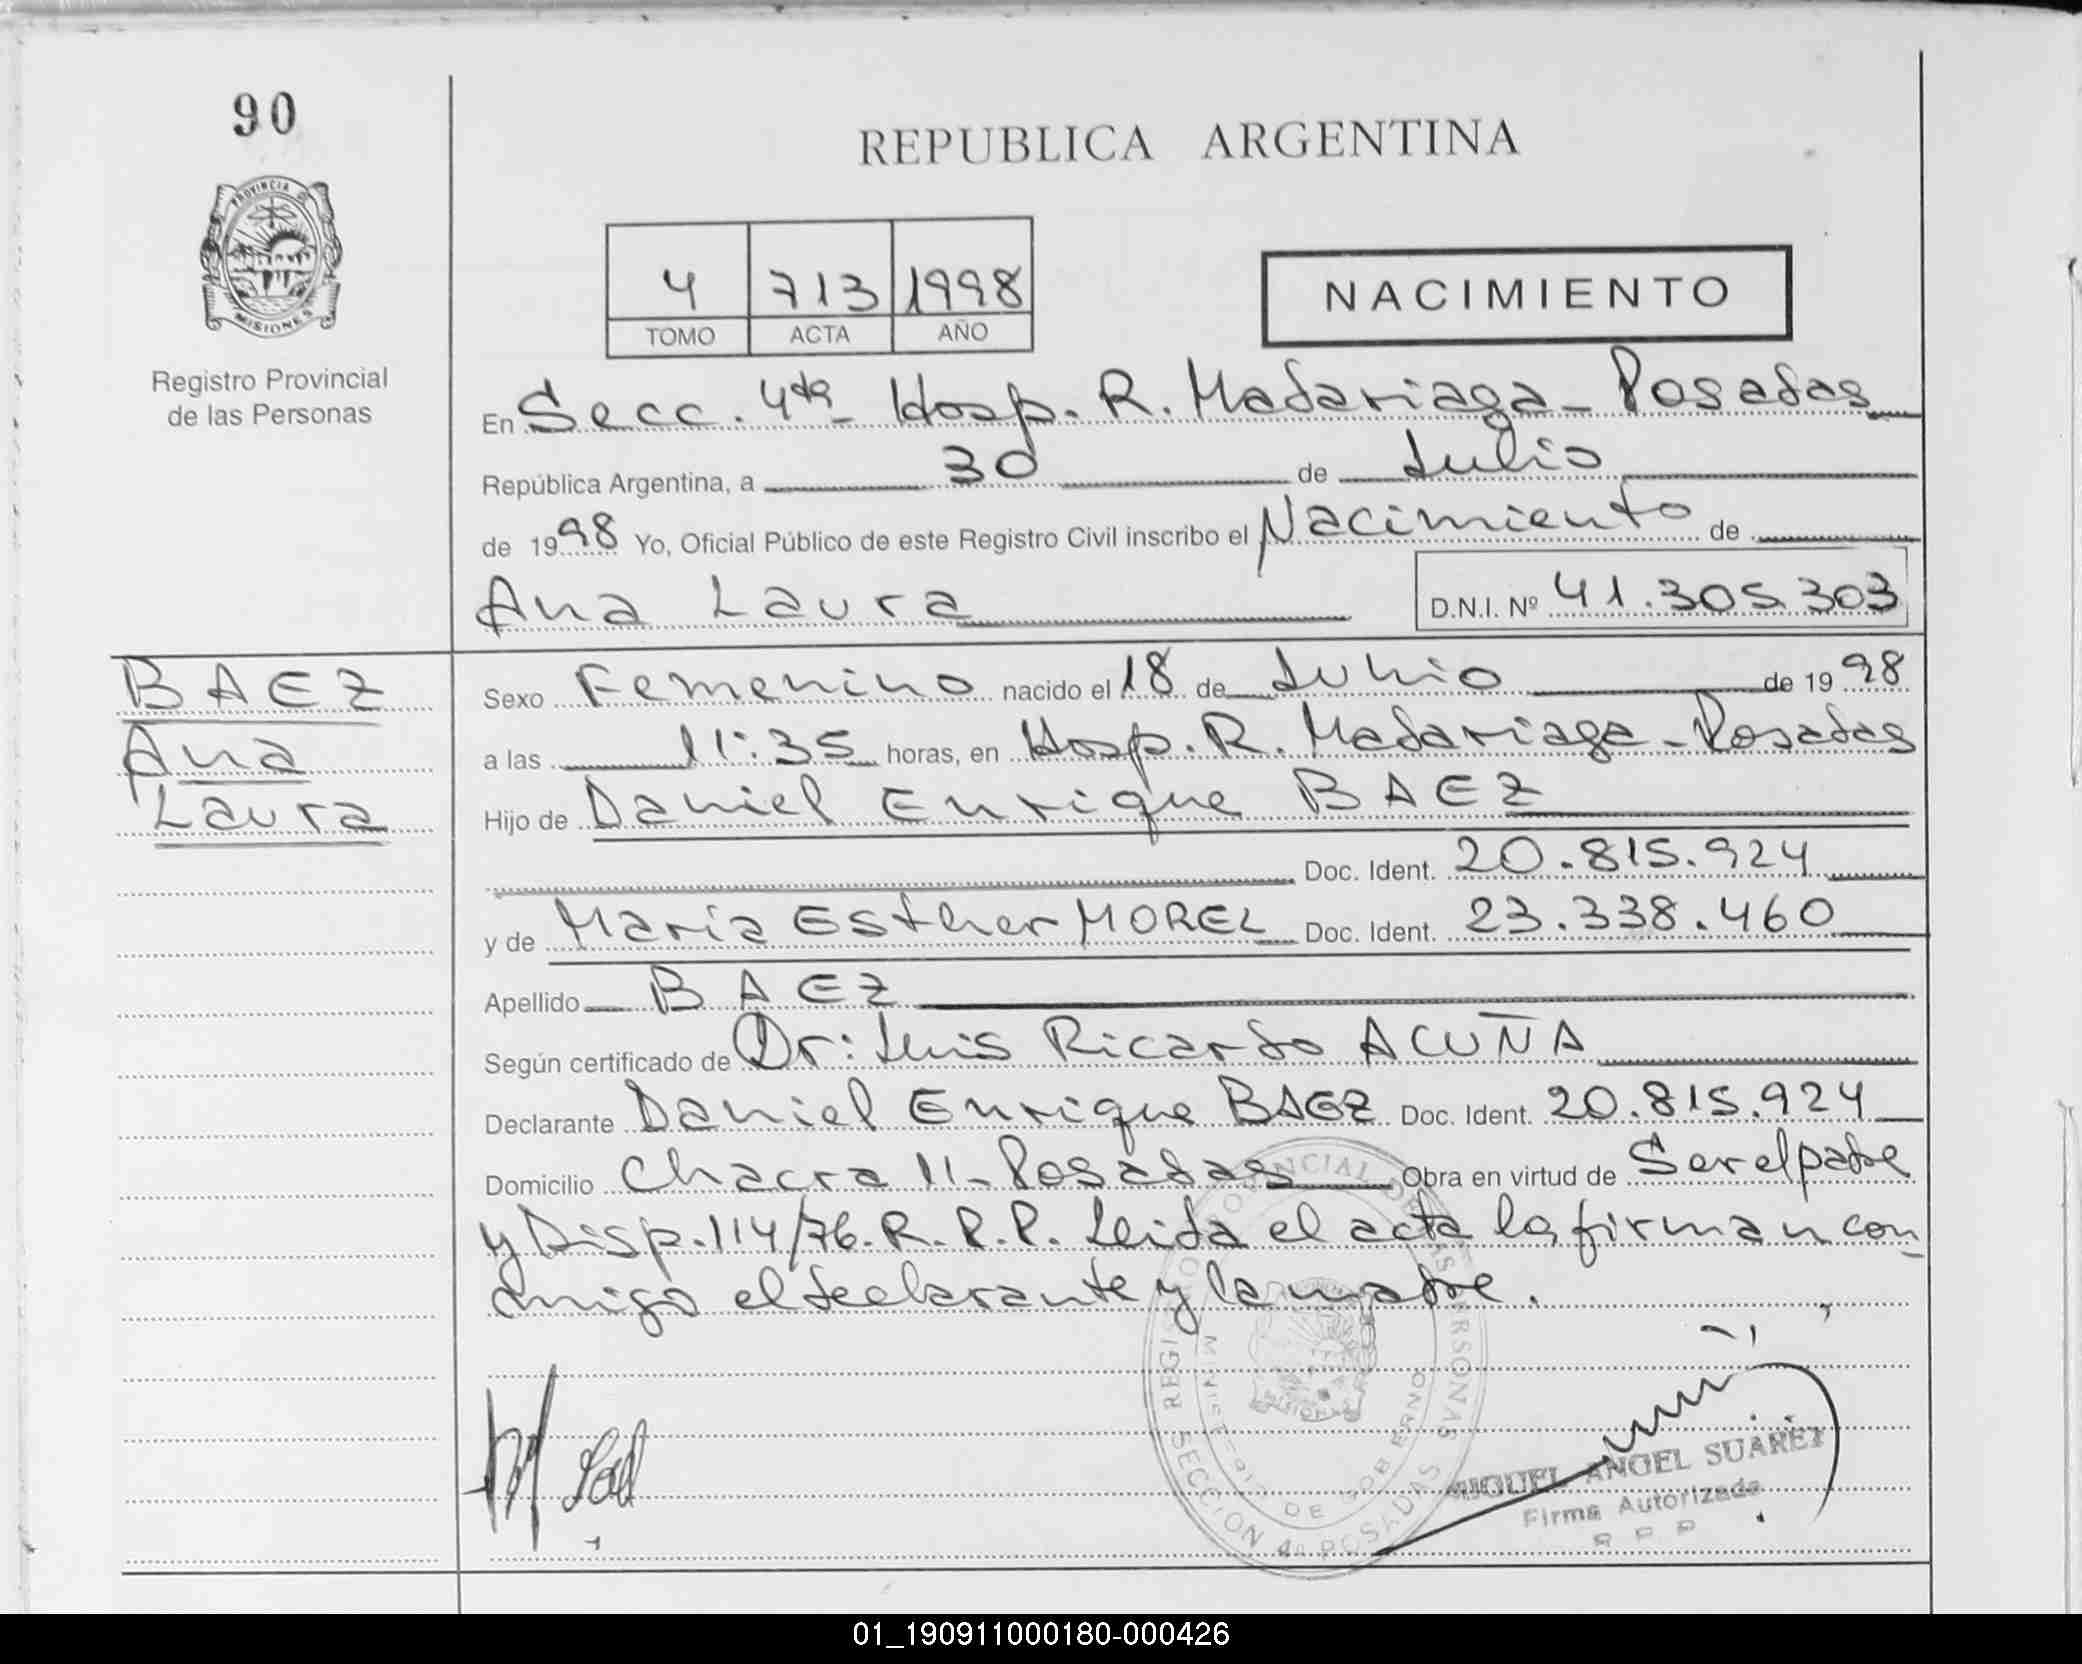 90
REPUBLICA ARGENTINA
PROVINCIA DE
MISIONES
Registro Provincial
de las Personas
4 713 1998
TOMO ACTA AÑO
NACIMIENTO
En Secc. 4ta - Hosp. R. Madariaga - Posadas
República Argentina, a 30 de Julio
de 1998 Yo, Oficial Público de este Registro Civil inscribo el Nacimiento de
Ana Laura D.N.I. Nº 41.305.303
BAEZ
Ana
Laura
Sexo Femenino nacido el 18 de Julio de 1998
a las 11:35 horas, en Hosp. R. Madariaga - Posadas
Hijo de Daniel Enrique BAEZ
Doc. Ident. 20.815.924
y de Maria Esther MOREL Doc. Ident. 23.338.460
Apellido BAEZ
Según certificado de Dr: Luis Ricardo ACUÑA
Declarante Daniel Enrique BAEZ Doc. Ident. 20.815.924
Domicilio Chacra 11 - Posadas Obra en virtud de Ser el padre
y Disp. 114/76. R.P.P. Leida el acta la firman con
migo el declarante y la madre.
REGISTRO PROVINCIAL DE LAS PERSONAS
MINISTERIO DE GOBIERNO
SECCION 4a POSADAS
MIGUEL ANGEL SUAREZ
Firma Autorizada
R P P
01_190911000180-000426